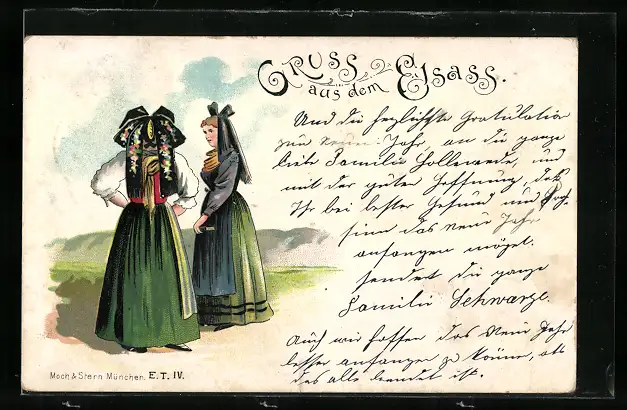 GRUSS
aus dem
ELSASS.
Und die herzlichste Gratulation
zum neuen Jahr, an die ganze
liebe Familie Hollewede, und
mit der guten Hoffnung, daß
Ihr bei bester Gesund und
sinn das neue Jahr
anfangen möget.
sendet die ganze
Familie Schwarze.
Auch wir hoffen das neue Jahr
besser anfangen zu können, als
das alte beendet ist.
Moch & Stern München. E.T. IV.